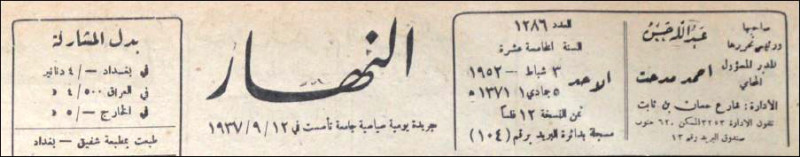 صاحبها
ورئيس تحريرها
عبد الله حسن
المدير المسؤول
المحامي
احمد مدحت
الادارة: شارع حسان بن ثابت
تلفون الادارة ٣٢٥٣ المسكن ٦٢٠ جنوب
صندوق البريد رقم ١٣
العدد ١٢٨٦
السنة الخامسة عشرة
الاحد
٣ شباط – ١٩٥٢
٥ جمادي ١ ١٣٧١ هـ
ثمن النسخة ١٢ فلساً
مسجلة بدائرة البريد برقم (١٠٤)
النهار
جريدة يومية سياسية جامعة تأسست في ١٩٣٧/٩/١٢
بدل المشاركة
في بغداد –/٤ دنانير
في العراق ٤/٥٠٠ د
في الخارج –/٥ د
طبعت بمطبعة شفيق – بغداد